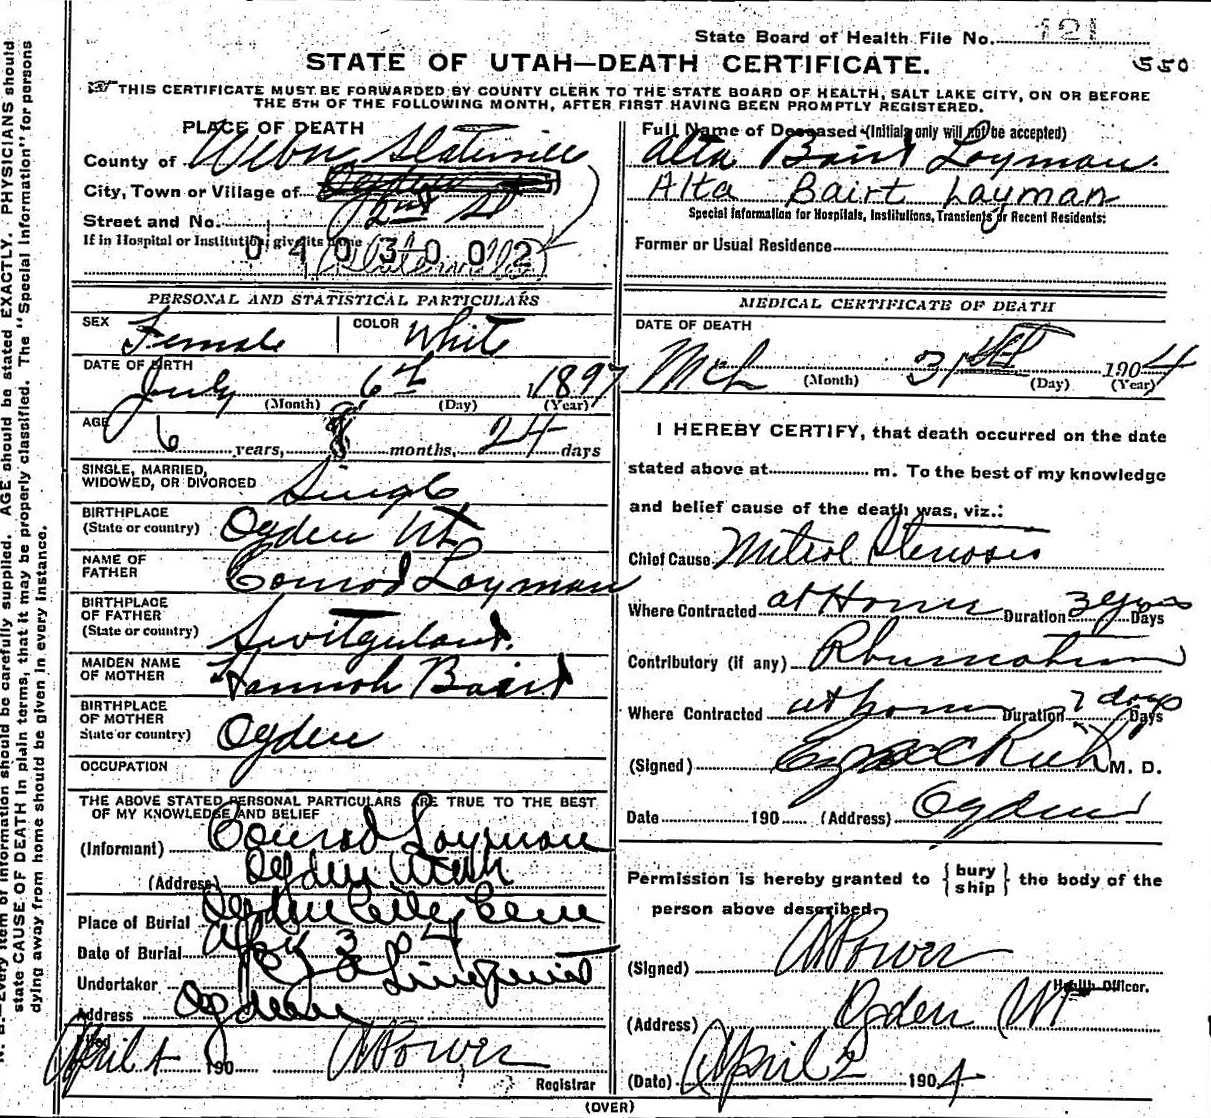 State Board of Health File No. 121
550
STATE OF UTAH—DEATH CERTIFICATE.
THIS CERTIFICATE MUST BE FORWARDED BY COUNTY CLERK TO THE STATE BOARD OF HEALTH, SALT LAKE CITY, ON OR BEFORE
THE 5TH OF THE FOLLOWING MONTH, AFTER FIRST HAVING BEEN PROMPTLY REGISTERED.
PLACE OF DEATH
County of Weber Slaterville
City, Town or Village of Ogden
Street and No. 2nd St
If in Hospital or Institution, give its name
0403002
(Slaterville)
Full Name of Deceased (Initials only will not be accepted)
Alta Bairt Layman.
Alta Bairt Layman
Special Information for Hospitals, Institutions, Transients or Recent Residents:
Former or Usual Residence
PERSONAL AND STATISTICAL PARTICULARS
SEX Female COLOR White
DATE OF BIRTH July 6th 1897
(Month) (Day) (Year)
AGE 6 years, 8 months, 24 days
SINGLE, MARRIED,
WIDOWED, OR DIVORCED Single
BIRTHPLACE
(State or country) Ogden Ut
NAME OF
FATHER Conrad Layman
BIRTHPLACE
OF FATHER
(State or country) Switzerland.
MAIDEN NAME
OF MOTHER Hannah Bairt
BIRTHPLACE
OF MOTHER
State or country) Ogden
OCCUPATION
THE ABOVE STATED PERSONAL PARTICULARS ARE TRUE TO THE BEST
OF MY KNOWLEDGE AND BELIEF
(Informant) Conrad Layman
(Address) Ogden Utah
Place of Burial Ogden City Cem
Date of Burial Apr 3 04
Undertaker Lindquist
Address Ogden
Filed April 4 190 Power
Registrar
MEDICAL CERTIFICATE OF DEATH
DATE OF DEATH
Mch 31st 1904
(Month) (Day) (Year)
I HEREBY CERTIFY, that death occurred on the date
stated above at m. To the best of my knowledge
and belief cause of the death was, viz.:
Chief Cause Mitral Stenosis
Where Contracted at Home Duration 3 years Days
Contributory (if any) Rhumatism
Where Contracted at home Duration 7 days Days
(Signed) Rich M. D.
Date 190 (Address) Ogden
Permission is hereby granted to {bury ship} the body of the
person above described.
(Signed) Power
Health Officer.
(Address) Ogden Ut
(Date) April 2 1904
(OVER)
N. B.—Every item of information should be carefully supplied. AGE should be stated EXACTLY. PHYSICIANS should
state CAUSE OF DEATH in plain terms, that it may be properly classified. The "Special Information" for persons
dying away from home should be given in every instance.